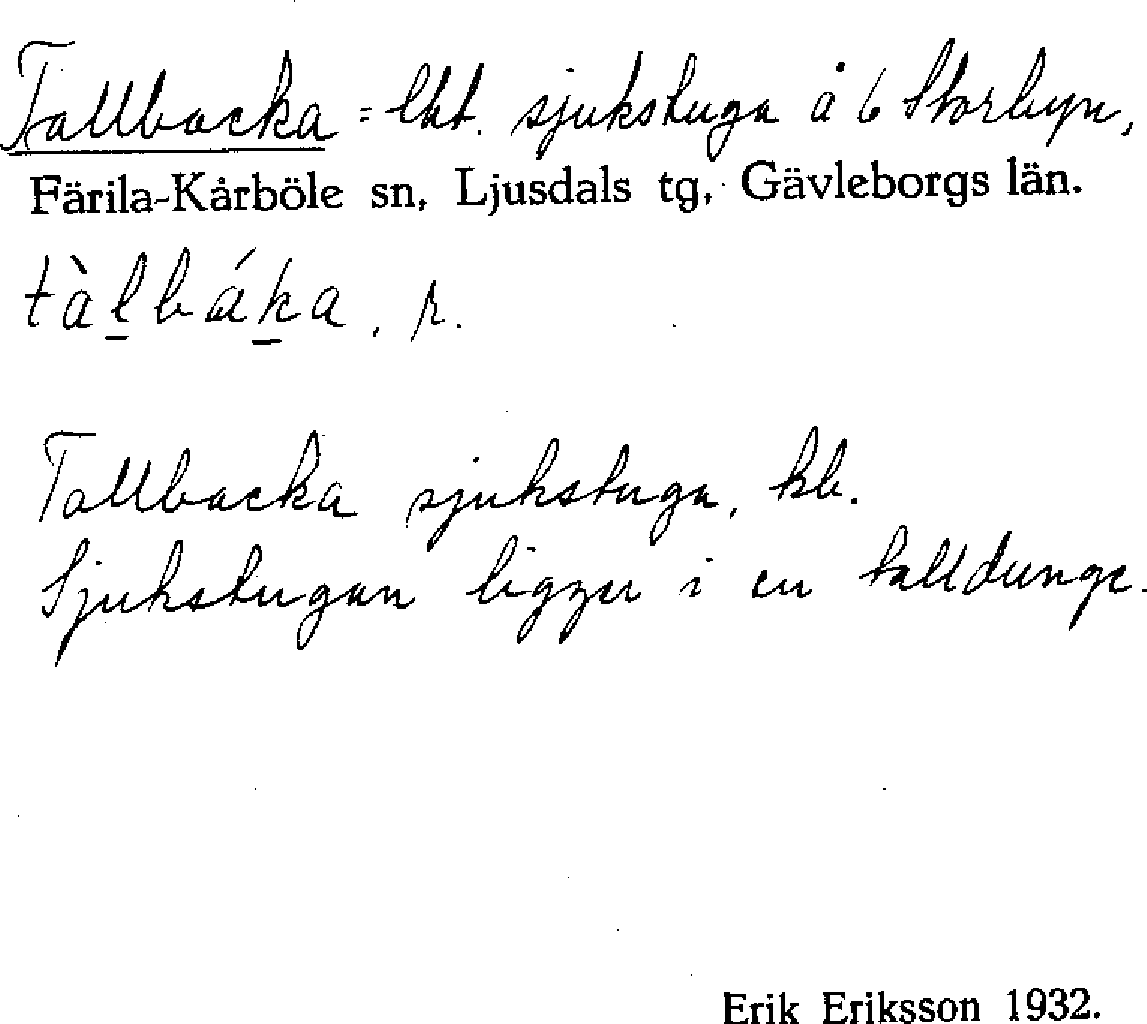 Tallbacka = lht. sjukstuga å 6 Storbyn,
Färila-Kårböle sn, Ljusdals tg, Gävleborgs län.
tàl̲bák̲a, r.
Tallbacka sjukstuga, kb.
Sjukstugan ligger i en talldunge.
Erik Eriksson 1932.